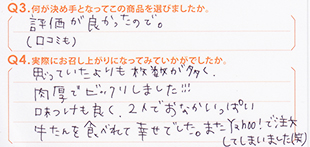 Q3.何が決め手となってこの商品を選びましたか。
評価が良かったので。
(口コミも)
Q4.実際にお召し上がりになってみていかがでしたか。
思っていたよりも枚数が多く、
肉厚でビックリしました!!!
味つけも良く、2人でおなかいっぱい
牛たんを食べれて幸せでした。またYahoo!で注文
してしまいました(笑)